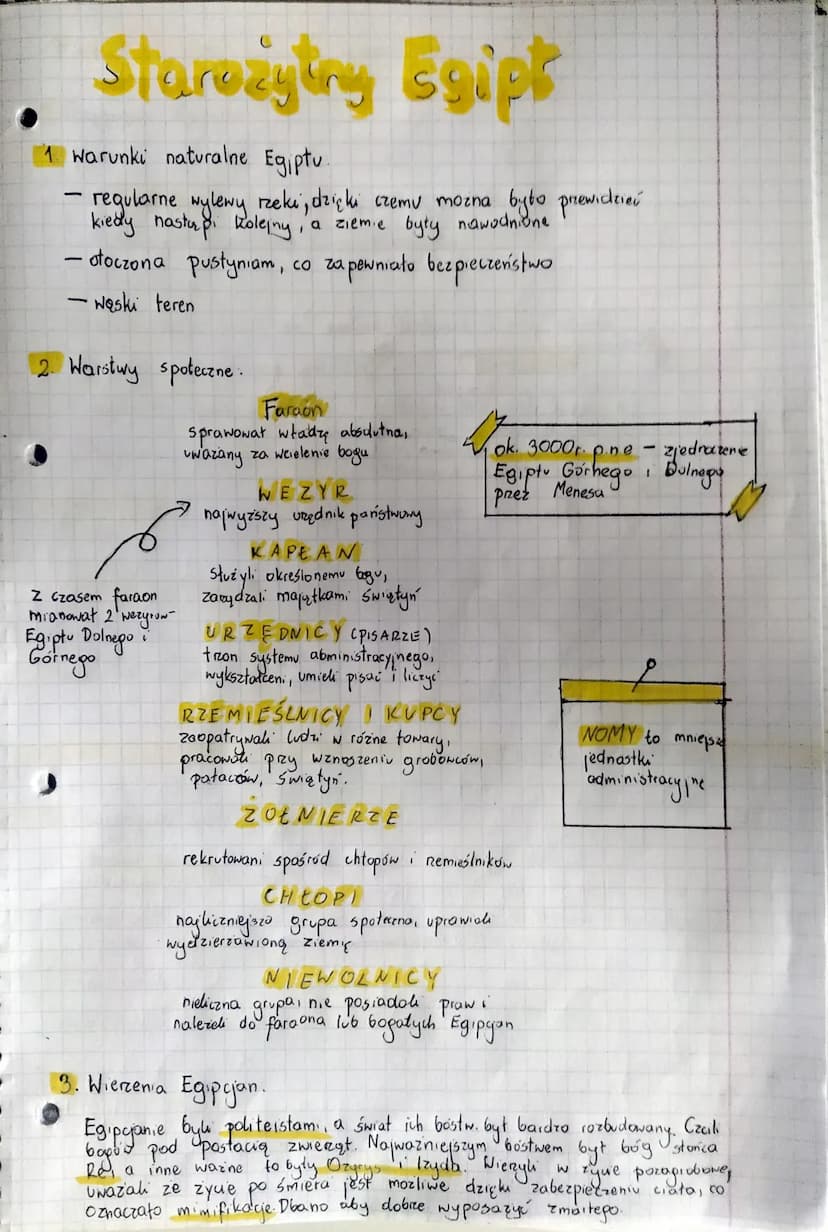 Starożytny Egipt
1. Warunki naturalne Egiptu.
– regularne wylewy rzeki, dzięki czemu mozna było przewidzieć
kiedy nastąpi kolejny, a ziemie były nawodnione
– otoczona pustyniam, co zapewniało bezpieczeństwo
– wąski teren
2. Warstwy społeczne.
Faraon
sprawował władzę absolutną,
uważany za wcielenie bogu
WEZYR
najwyższy urzędnik państwowy
KAPŁAN
Służyli określonemu bogu,
zarządzali majątkami świątyń
URZĘDNICY (PISARZE)
tron systemu abministracyjnego,
wykształceni, umieli pisać i liczyć
RZEMIEŚLNICY I KUPCY
zaopatrywali ludzi w różne towary,
pracowali przy wznoszeniu grobowców,
pałaców, świątyń.
ŻOŁNIERZE
rekrutowani spośród chłopów i rzemieślników
CHŁOPI
najliczniejsza grupa społeczna, uprawiali
wydzierżawioną ziemię
NIEWOLNICY
nieliczna grupa, nie posiadali praw i
należeli do faraona lub bogatych Egipcjan
Z czasem faraon
mianował 2 wezyrów–
Egiptu Dolnego i
Górnego
ok. 3000r. p.n.e – zjednoczenie
Egiptu Górnego i Dolnego
przez Menesa
NOMY to mniejsze
jednostki
administracyjne
3. Wierzenia Egipcjan.
Egipcjanie byli politeistami, a świat ich bóstw. był bardzo rozbudowany. Czcili
bogów pod postacią zwierząt. Najważniejszym bóstwem był bóg słońca
Re, a inne ważne to były Ozyrys i Izyda. Wierzyli w życie pozagrobowe,
uważali że życie po śmierci jest możliwe dzięki zabezpieczeniu ciała, co
oznaczało mimifikację. Dbano aby dobrze wyposażyć zmarłego.